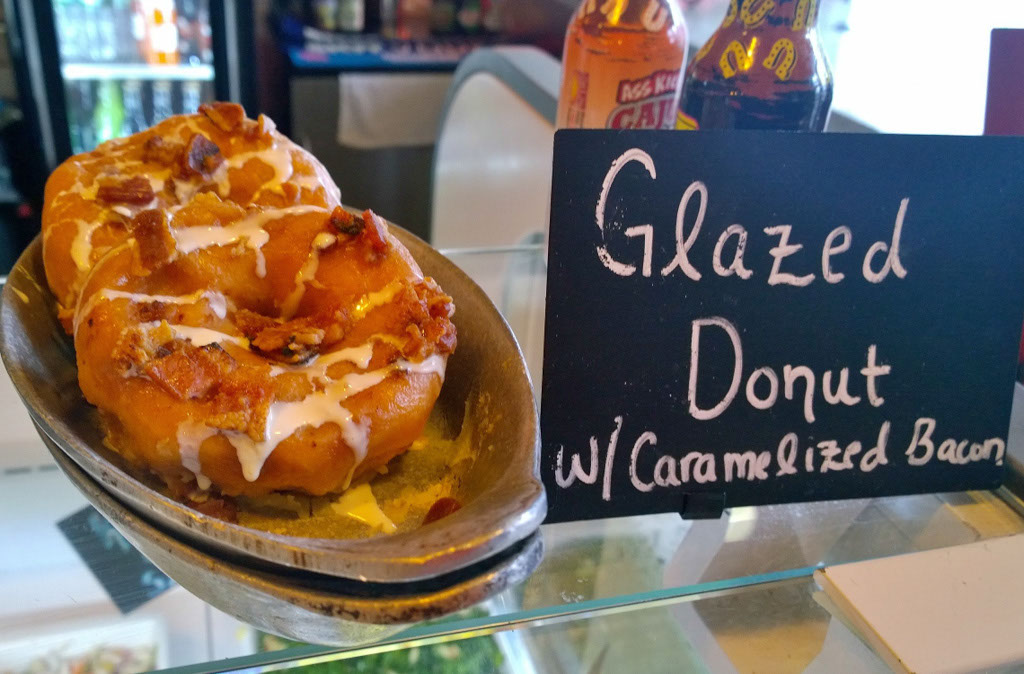 ASS KIC
Glazed
Donut
w/ Caramelized Bacon